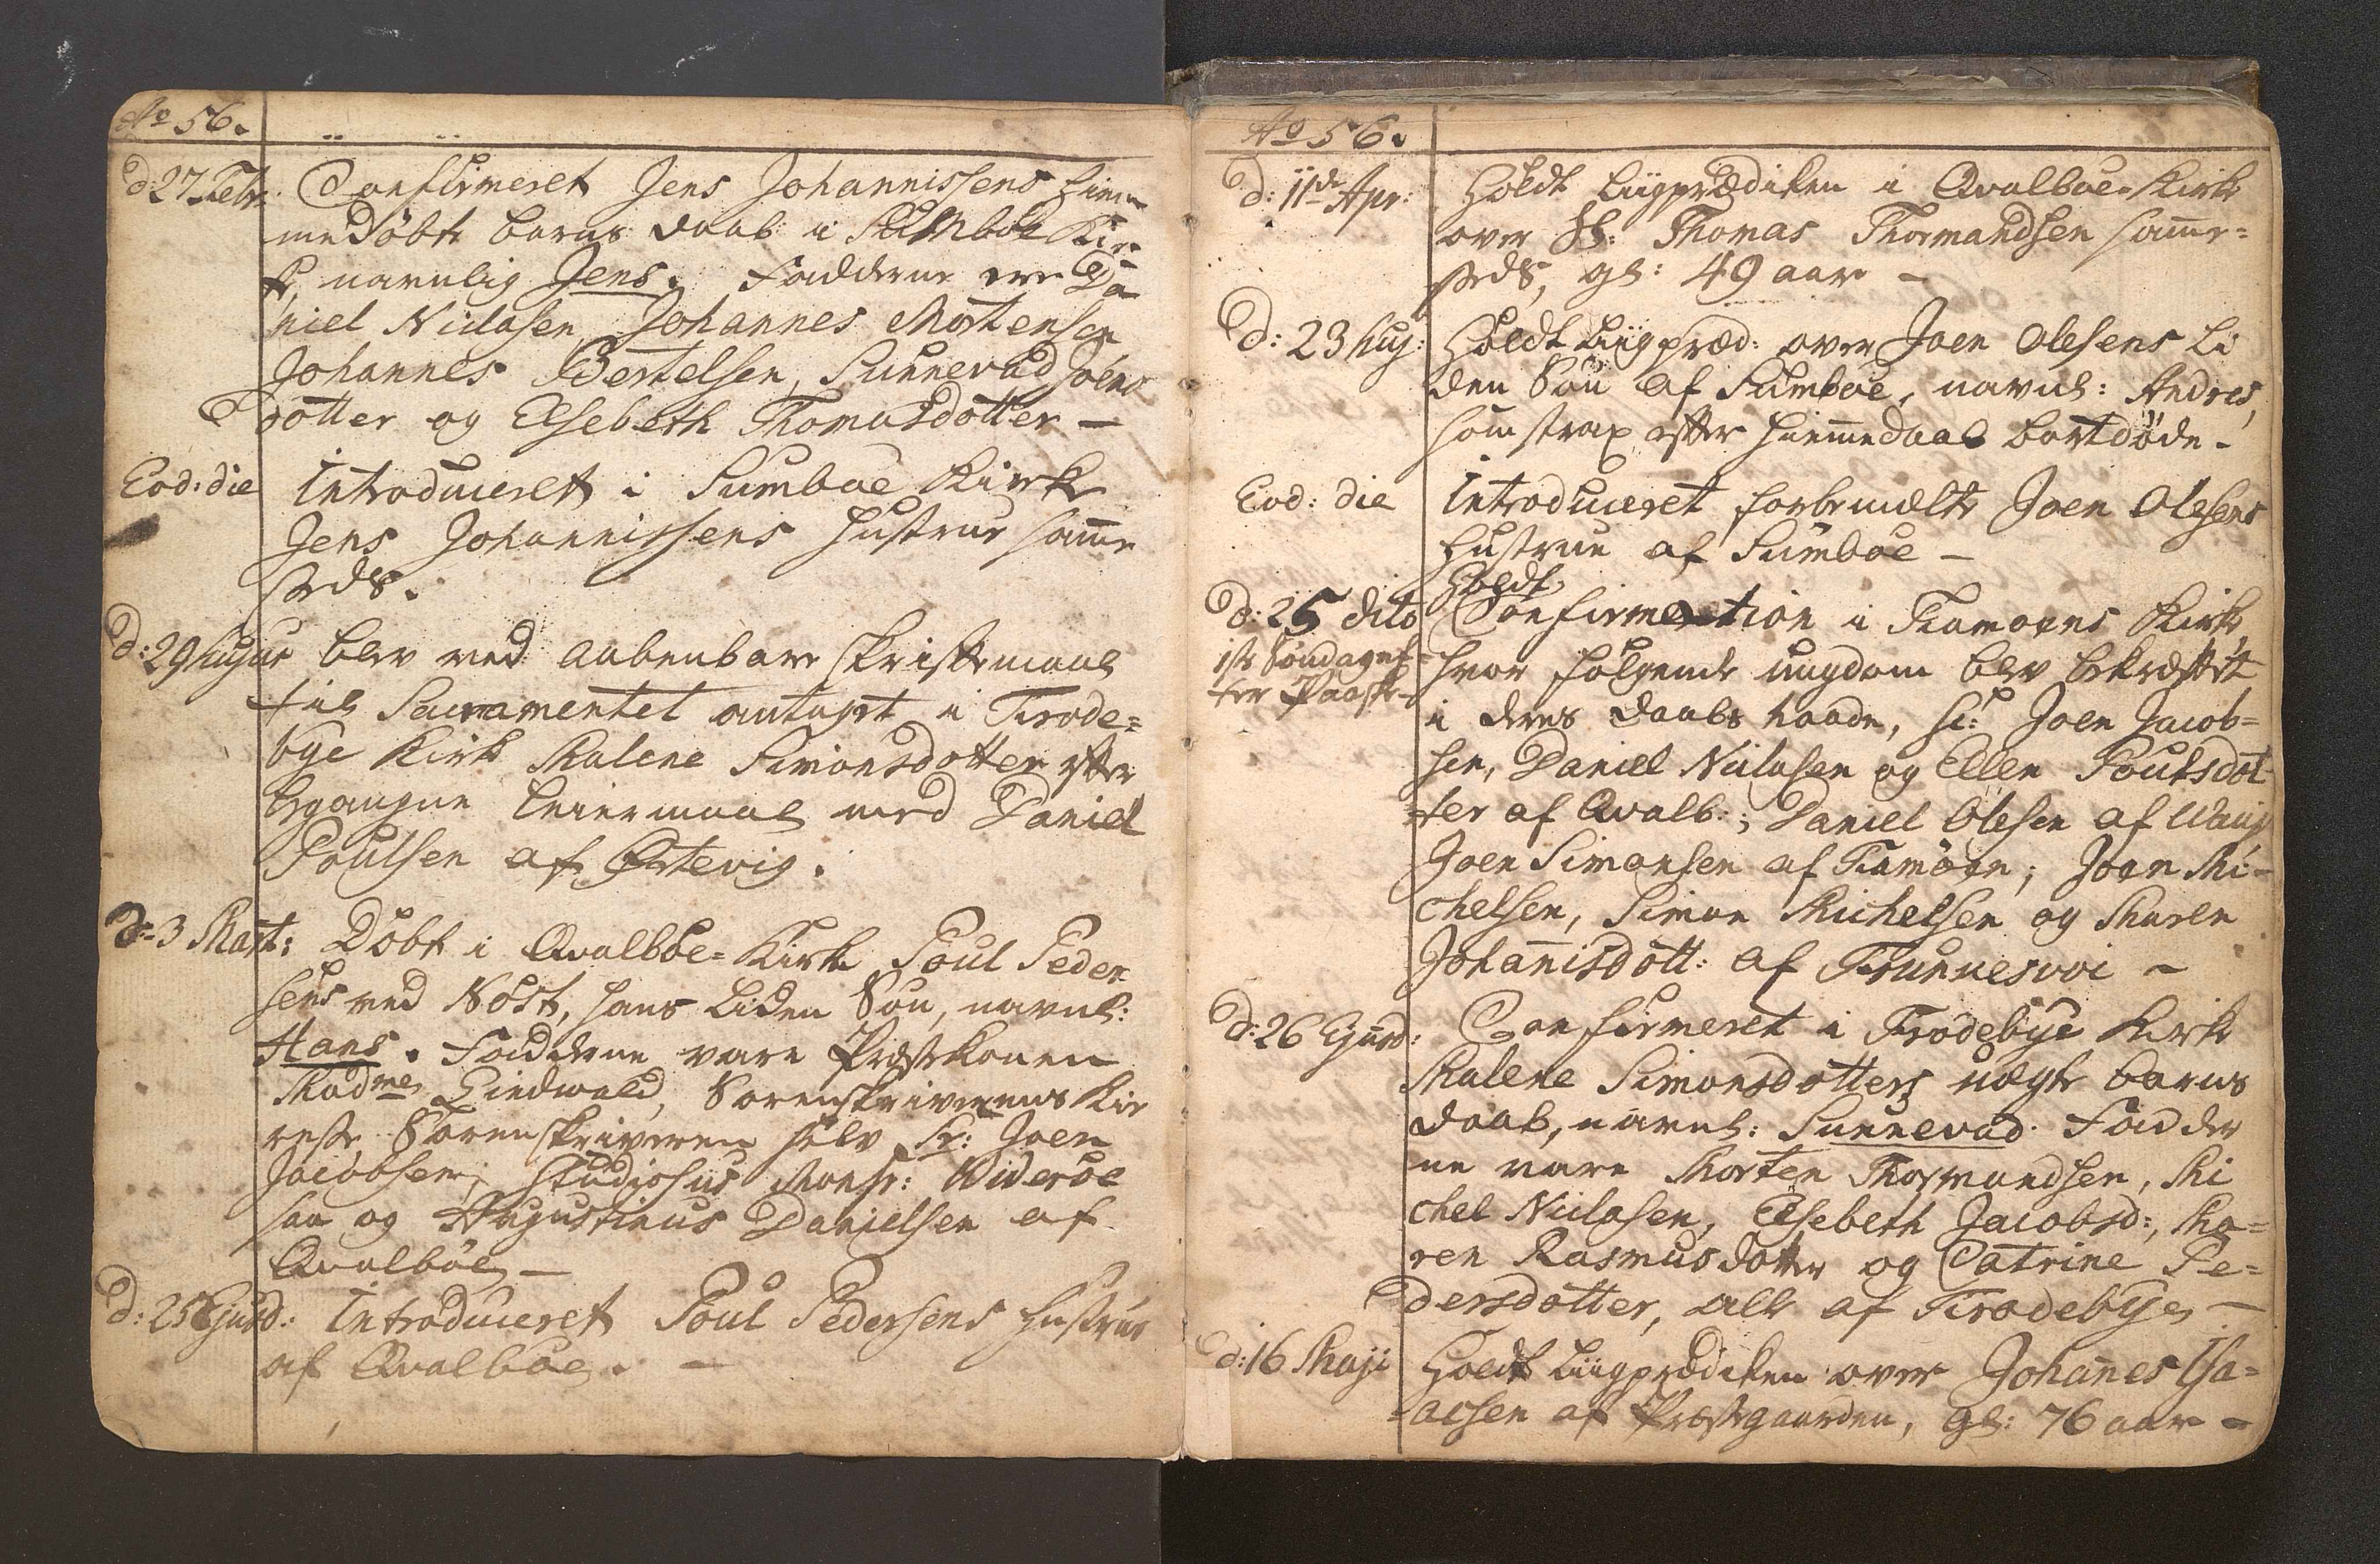 Ao 56.
d: 27 Febr: Confirmeret Jens Johannissens hiem
medöbte barns daab i Sumböe Kir
ke navnlig Jens. Fadderne ere Da
niel Niclasen, Johannes Mortensen
Johannes Bertelsen, Sunnevad Joens
dotter og Elsebeth Thomasdotter –
Eod: die Introduceret i Sumboe Kirke
Jens Johannissens Hustrue samme
steds.
d: 29 hujus blev ved aabenbare skriftemaal
til Sacramentet antaget i Frode=
bye Kirke Malene Simonsdotter efter
begangne leiermaal med Daniel
Poulsen af Ørtevig.
d: 3 Mart: Döbt i Qvalböe-Kirke Poul Peder
sens ved Nöst, hans liden Sön, navnl:
Hans. Fadderne vare Præstekonen
Madme Lindwald, Sorenskriverens Kie
reste Sorenskriveren selv Sr: Joen
Jacobsen, Studiosus Monsr: Wideröe
saa og Augustinus Danielsen af
Qvalböe –
d: 25 Ejusd: Introduceret Poul Pedersens Hustrue
af Qvalböe. –
Ao 56.
d: 11de Apr: Holdt Liigprædiken i Qvalböe-Kirke
over Sl: Thomas Thormandsen samme=
steds, gl: 49 aar –
d: 23 huj: Holdt Liigpræd: over Joen Olesens li
den Sön af Sumböe, navnl: Andres,
som strax efter hiemmedaab bortdöde –
Eod: die Introduceret forbemelte Joen Olesens
Hustrue af Sumböe –
Holdt
d: 25 dito Confirmation i Famoens Kirke,
1ste Söndag ef=
ter Paaske
hvor fölgende ungdom blev bekræftet
i deres Daabs naade, sc: Joen Jacob=
sen, Daniel Niclasen og Ellen Poulsdot
=ter af Qvalb:; Daniel Olesen af Waag
Joen Simonsen af Famöen; Joen Mi=
chelsen, Simon Michelsen og Maren
Johannisdott: af Frunnesvoi –
d: 26 Ejusd: Confirmeret i Frodebye Kirke
Malene Simonsdotters uægte barns
daab, navnl: Sunnevad. Fadder
ne vare Morten Thormandsen, Mi
chel Niclasen, Elsebeth Jacobsd:, Ma=
ren Rasmusdotter og Catrine Pe=
dersdotter, alle af Frodebye –
d: 16 Maji Holdt Liigprædiken over Johannes Isa=
=acsen af Præstegaarden, gl: 76 aar –